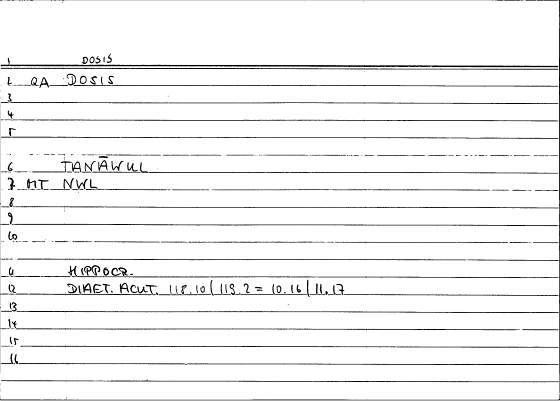 1 DOSIS
2 QA DOSIS
3
4
5
6 TANĀWUL
7 MT NWL
8
9
10
11 HIPPOCR.
12 DIAET. ACUT. 118.10 / 119.2 = 10.16 / 11.17
13
14
15
16